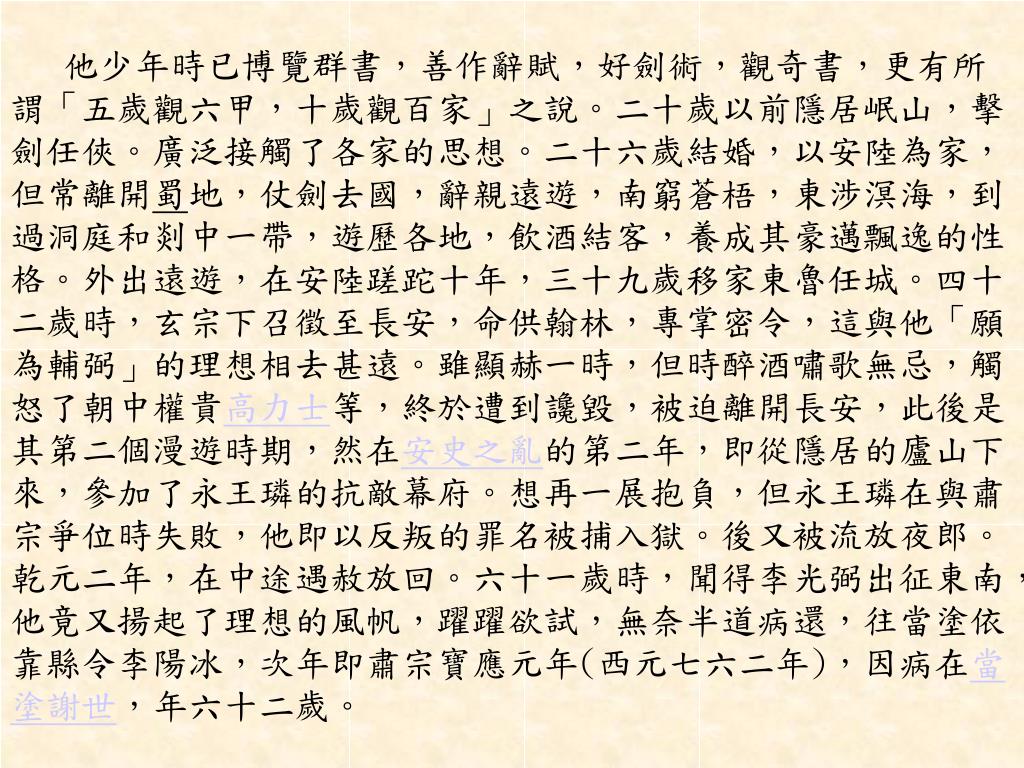 他少年時已博覽群書，善作辭賦，好劍術，觀奇書，更有所
謂「五歲觀六甲，十歲觀百家」之說。二十歲以前隱居岷山，擊
劍任俠。廣泛接觸了各家的思想。二十六歲結婚，以安陸為家，
但常離開蜀地，仗劍去國，辭親遠遊，南窮蒼梧，東涉溟海，到
過洞庭和剡中一帶，遊歷各地，飲酒結客，養成其豪邁飄逸的性
格。外出遠遊，在安陸蹉跎十年，三十九歲移家東魯任城。四十
二歲時，玄宗下召徵至長安，命供翰林，專掌密令，這與他「願
為輔弼」的理想相去甚遠。雖顯赫一時，但時醉酒嘯歌無忌，觸
怒了朝中權貴高力士等，終於遭到讒毀，被迫離開長安，此後是
其第二個漫遊時期，然在安史之亂的第二年，即從隱居的廬山下
來，參加了永王璘的抗敵幕府。想再一展抱負，但永王璘在與肅
宗爭位時失敗，他即以反叛的罪名被捕入獄。後又被流放夜郎。
乾元二年，在中途遇赦放回。六十一歲時，聞得李光弼出征東南，
他竟又揚起了理想的風帆，躍躍欲試，無奈半道病還，往當塗依
靠縣令李陽冰，次年即肅宗寶應元年(西元七六二年)，因病在當
塗謝世，年六十二歲。